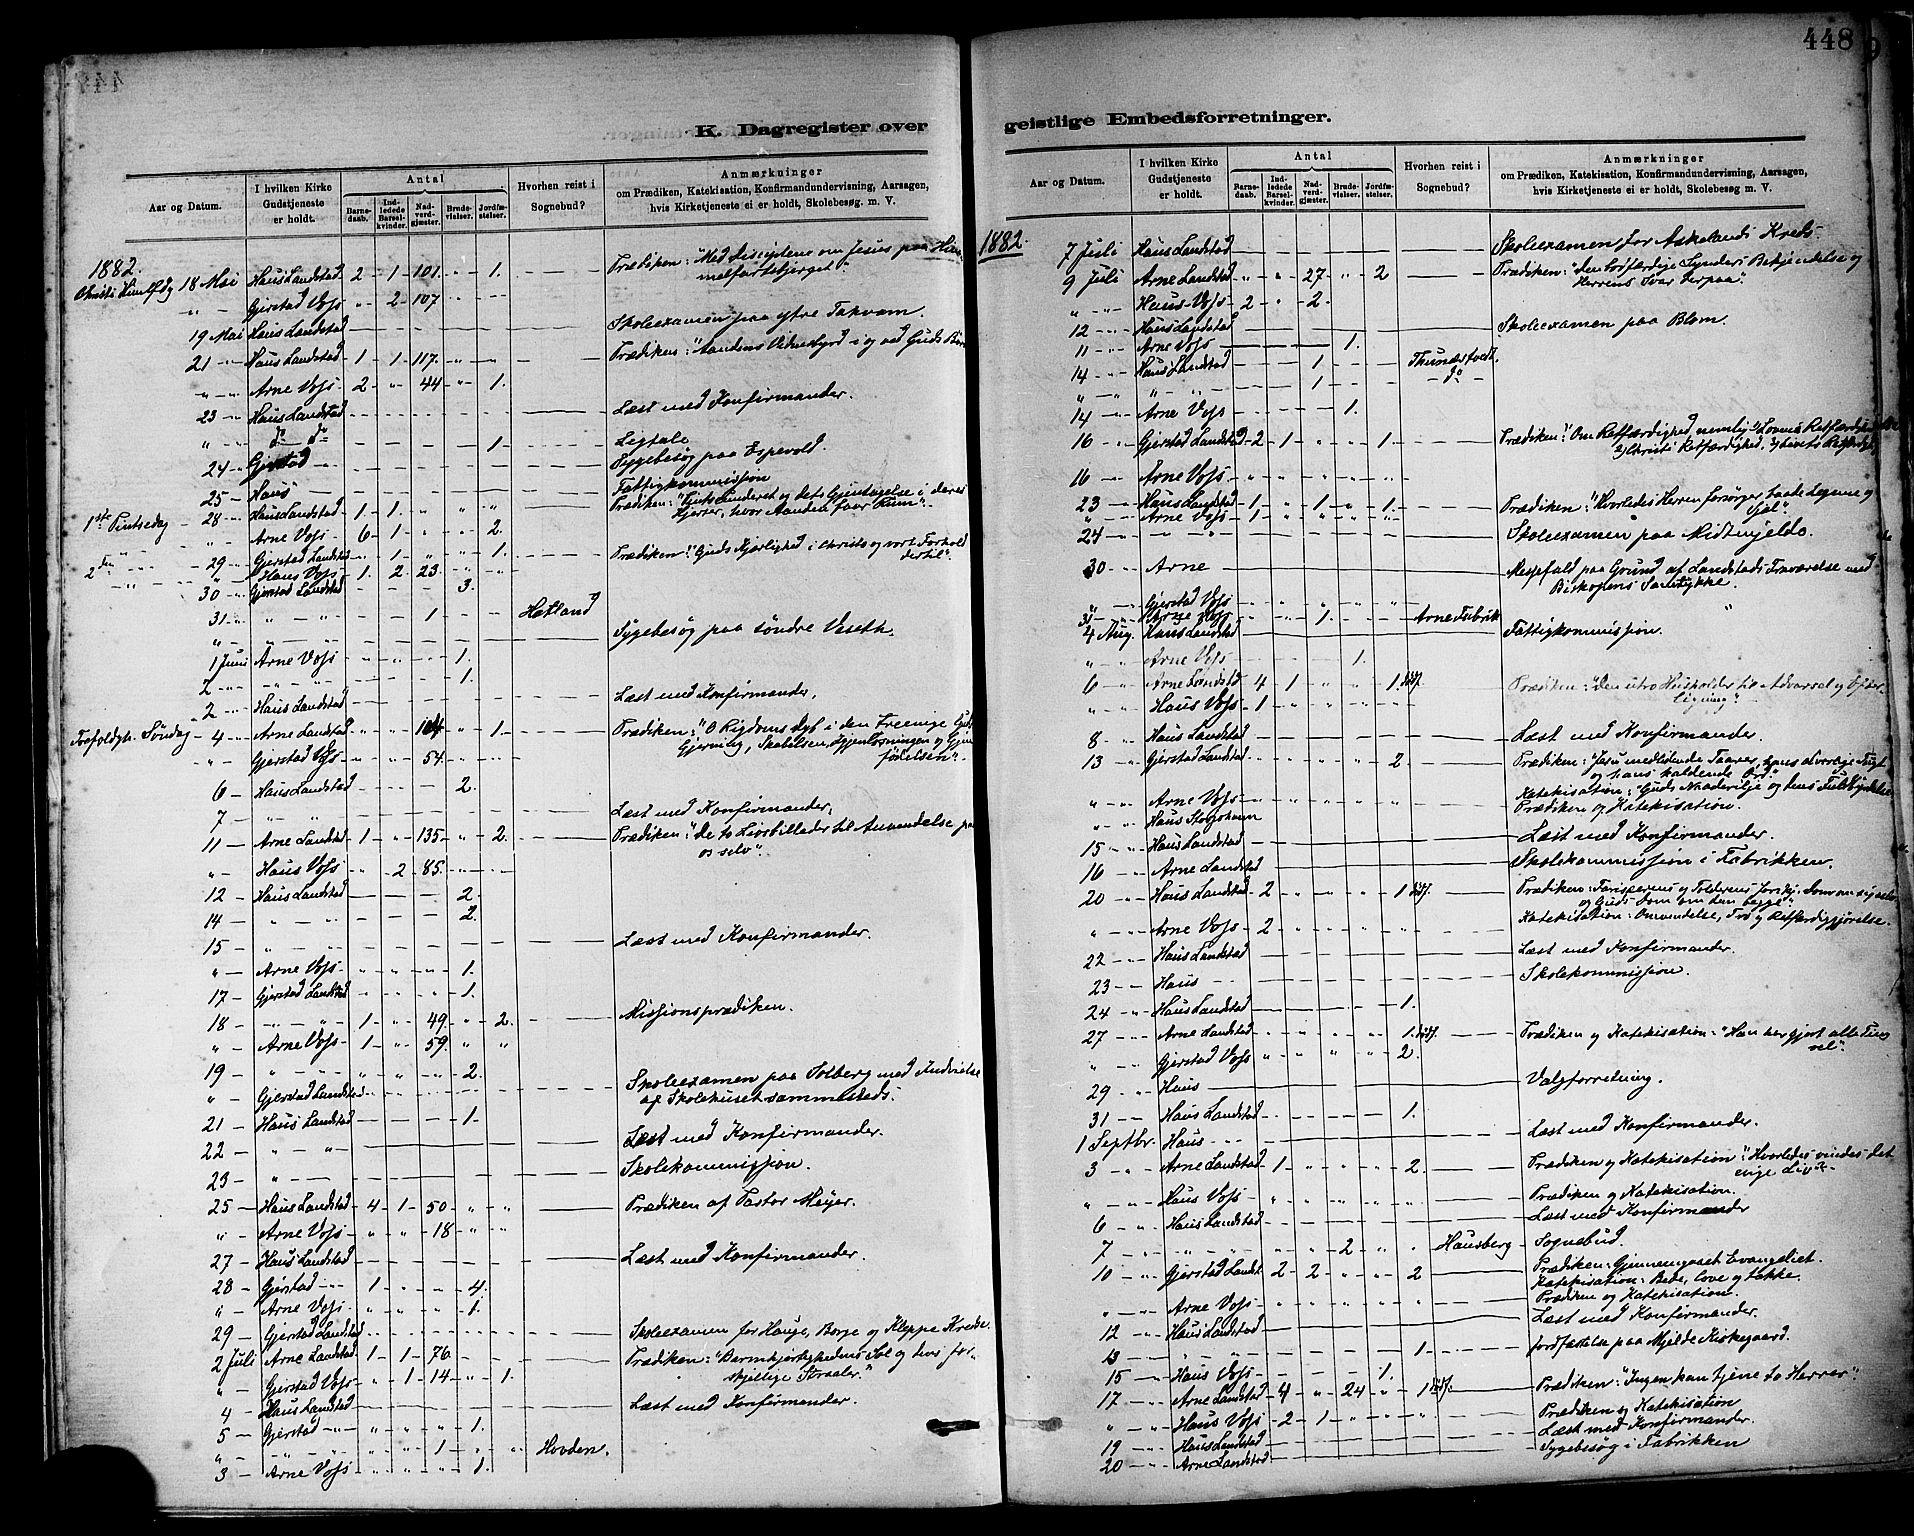 448
K. Dagregister over
Aar og Datum.
I hvilken Kirke Gudstjeneste er holdt.
Antal
Barnedaab.
Indledede Barselkvinder.
Nadverdgjæster.
Brudevielser.
Jordfæstelser.
Hvorhen reist i Sognebud?
Anmærkninger
om Prædiken, Katekisation, Konfirmandundervisning, Aarsagen,
hvis Kirketjeneste ei er holdt, Skolebesøg m. V.
1882.
18 Mai Haus Landstad 2 - 1 - 101. " - 1. Prædiken: "Med Disciplene om Jesus paa Himmelfartsbjerget".
" " Gjerstad Vojs " - 2 - 107.
19 Mai Haus Landstad Skoleexamen paa ytre Takvam.
21 " Haus Landstad 1 - 1 - 117. Prædiken: "Aandens Vidnesbyrd i og ved Guds Børn
" " Arne Vojs 2 - " - 44 - " - 1.
23 " Haus Landstad Læst med Konfirmander.
" d° d° 1. Ligtale
24 " Gjerstad Sygebesøg paa Espevold.
25 " Haus Fattigkommission
1ste Pintsedag 28 Haus Landstad 1 - 1. Prædiken: "Pintseunderet og dets Gjentagelse i deres Hjerter, hvor Aanden faar Rum".
" Arne Vojs 6 - 1 - " - " - 2.
2den " 29 Gjerstad Landstad " - 1 - " - " - 1. Prædiken: "Guds Kjærlighed i Christo og vort Forhold dertil".
" Haus Vojs 1. 2 - 23.
30 Gjerstad Landstad 3.
31 " " 1 Hetland
" " " Sygebesøg paa søndre Veseth.
1 Juni Arne Vojs 1.
2 " " 1.
2 Haus Landstad Læst med Konfirmander.
Trefoldgh. Søndag 4 Arne Landstad " - " - 104 - " - 1. Prædiken: "O Rigdoms dyb i den Treenige Guds Gjerning, Skabelsen, Igjenløsningen og Gjenfødelsen".
" Gjerstad Vojs 54.
6 Haus Landstad 2.
7 " " Læst med Konfirmander.
11 Arne Landstad 1 - " - 135 - " - 2. Prædiken: "De to Livsbilleder til Anvendelse paa os selv".
" Haus Vojs 2 - 85.
12 Haus Landstad 2.
14 " " 2.
15 " " Læst med Konfirmander.
" Arne Vojs 1.
17 Gjerstad Landstad 1.
18 " " 1 - " - 49. " - 2. Missionsprædiken.
" Arne Vojs 1 - " - 59. " "
19 " " 2.
" Gjerstad Landstad Skoleexamen paa Solberg med Indvielse af Skolehuset sammesteds.
21 Haus Landstad 1.
22 " " Læst med Konfirmander.
23 " Skolekommission.
25 Haus Landstad 4 - 1 - 50 - " - " Prædiken af Pastor Meyer.
" Arne Vojs " " 18 - " "
27 Haus Landstad Læst med Konfirmander.
28 Gjerstad " 1 - " - " - 4.
" Arne Vojs 1.
29 Gjerstad Landstad Skoleexamen for Hauge, Borge og Kleppe Kredse.
2 Juli Arne Landstad 1 - 1 - 76 Prædiken: "Barmhjertighedens Sol og dens forskjellige Straaler".
" Gjerstad Vojs " - 1 - 14 - " - 1.
4 Haus Landstad Læst med Konfirmander.
5 Gjerstad " 1.
" " 1 - " " Hovden.
3 Arne Vojs 1.
448
geistlige Embedsforretninger.
Aar og Datum.
I hvilken Kirke Gudstjeneste er holdt.
Antal
Barnedaab.
Indledede Barselkvinder.
Nadverdgjæster.
Brudevielser.
Jordfæstelser.
Hvorhen reist i Sognebud?
Anmærkninger
om Prædiken, Katekisation, Konfirmandundervisning, Aarsagen,
hvis Kirketjeneste ei er holdt, Skolebesøg m. V.
1882.
7 Juli Haus Landstad Skoleexamen for Askelands Kreds.
9 Juli Arne Landstad " " 27 - " - 2 Prædiken: "Den bodfærdige Synders Bekjendelse og Herrens Svar derpaa".
" " Haus Vojs 2 - " - 2.
12 Haus Landstad Skoleexamen paa Blom.
11 " Arne Vojs 1.
14 Haus Landstad 1 Thunæstvedt.
" " " 1 d°
14 Arne Vojs 1.
16 " Gjerstad Landstad 2 - 1 - " - " - 1. Prædiken: "Om Retfærdighed, nemlig 1/ Lovens Retfærdighed 2/ Christi Retfærdighed, 3/ Livets Retfærdighed
16 Arne Vojs
23 Haus Landstad 1 - 1 - " - 1 - " - 1. Prædiken: "Hvorledes Herren forsørger baade Legeme og Sjel".
" Arne Vojs 1
24 " " Skoleexamen paa Midtmjelde.
30 Arne Messefald paa Grund af Landstads Fraværelse med Biskopens Samtykke.
" Gjerstad Vojs
31 Arne Vojs 1. Arne Fabrik "
4 Aug. Haus Landstad Fattigkommission.
" " Arne Vojs 1.
6 " Arne Landstad 4 - 1 - " - " - 1. Prædiken: "Den utro Husholder til Advarsel og Efterligning".
" Haus Vojs 1
8 " Haus Landstad Læst med Konfirmander.
13 Gjerstad Landstad 2. Prædiken: "Jesu medlidende Taarer, hans alvorlige Tugt og hans kaldende Ord".
Katekisation: "Guds Naadevilje og dens Fuldbyrdelse
" Arne Vojs Prædiken og Katekisation.
" Haus
15 Haus Landstad Læst med Konfirmander.
16 Arne Landstad Skolekommission i Fabrikken.
20 Haus Landstad 2 - 1 Prædiken: Farisæerens og Tolderens Dom om sig selv og Guds Dom om dem begge".
Katekisation: Omvendelse, Tro og Retfærdiggjørelse.
" Arne Vojs 2
22 Haus Landstad Læst med Konfirmander.
23 Haus Skolekommission.
24 Haus Landstad 1.
27 Arne Landstad 1. Prædiken og Katekisation: "Han har gjort alle Ting vel".
" Gjerstad Vojs 2
29 Haus Valgforretning.
31 Haus Landstad 1.
1 Septbr. Haus Læst med Konfirmander.
3 " Arne Landstad 1 - 2. Prædiken og Katekisation: "Hvorledes vindes det evige Liv?"
" Haus Vojs Prædiken og Katekisation.
6 " Haus Landstad Læst med Konfirmander
7 " " " 2 - " - " Hausberg Sognebud.
10 " Gjerstad Landst. 2 - 2 - " - " - 2 Prædiken: Gjennemgaaet Evangeliet.
Katekisation: Bede, love og takke.
" Arne Vojs Prædiken og Katekisation.
12 " Haus Landstad Læst med Konfirmander.
13 " " 1 Jordfæstelse paa Mjelde Kirkegaard.
15 " Haus Vojs 1.
17 " Arne Landstad 4 - " - 24 - " - 1 Prædiken: "Ingen kan tjene to Herrer".
" Haus Vojs 2 - 1 Prædiken og Katekisation
19 " Haus Landstad Læst med Konfirmander.
20 " Arne Landstad Sygebesøg i Fabrikken